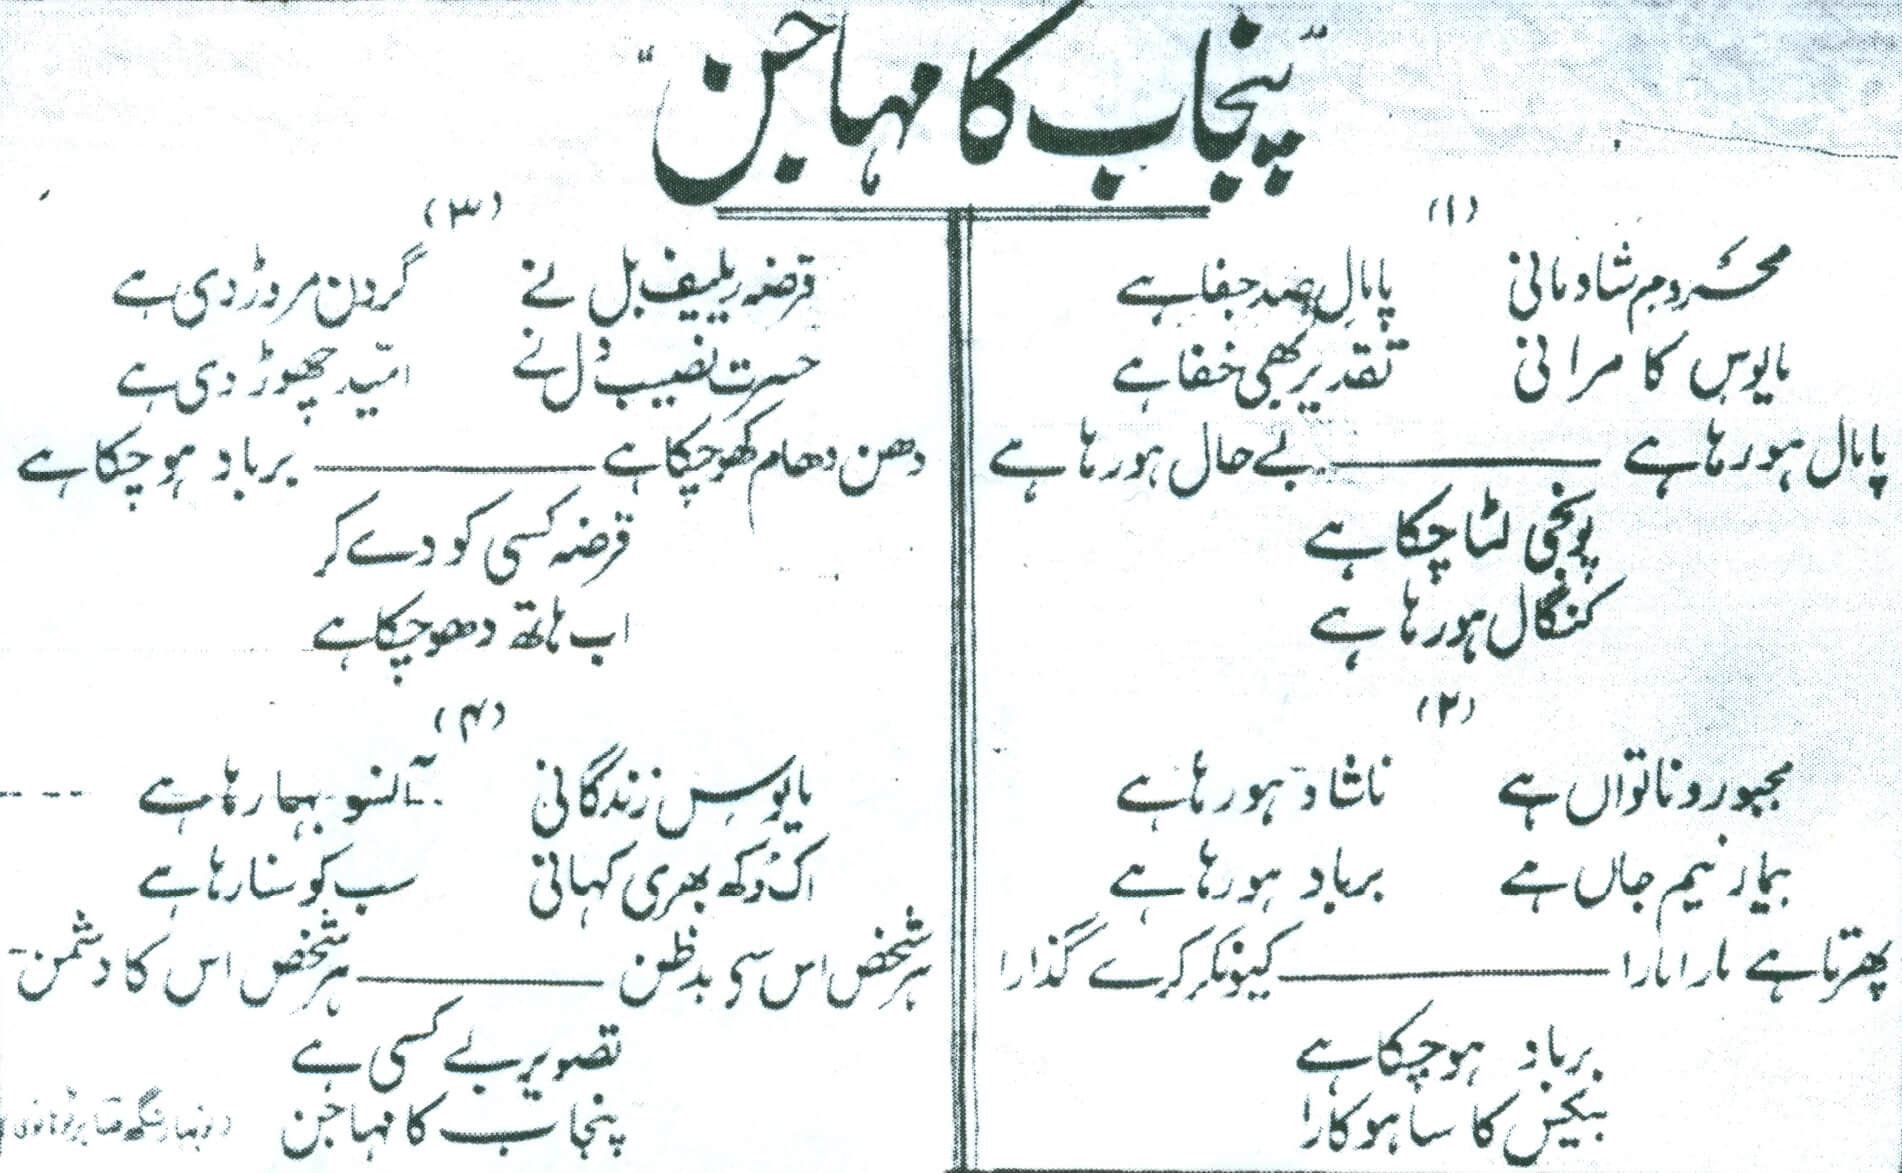 "پنجاب کا مہاجن"
(۱)
محروم شادمانی پامال صد جفا ہے
مایوس کامرانی تقدیر بھی خفا ہے
پامال ہو رہا ہے ——— بے حال ہو رہا ہے
پونجی لٹا چکا ہے
کنگال ہو رہا ہے
(۲)
مجبور و ناتواں ہے ناشاد ہو رہا ہے
بیمار نیم جاں ہے برباد ہو رہا ہے
پھرتا ہے مارا مارا ——— کیونکر کرے گذارا
برباد ہو چکا ہے
بیکس کا ساہوکارا
(۳)
قرضہ ریلیف بل نے گردن مروڑ دی ہے
حسرت نصیب دل نے امّید چھوڑ دی ہے
دھن دھام کھو چکا ہے ——— برباد ہو چکا ہے
قرضہ کسی کو دے کر
اب ہاتھ دھو چکا ہے
(۴)
مایوس زندگانی آنسو بہا رہا ہے
اک دُکھ بھری کہانی سب کو سنا رہا ہے
ہر شخص اس سی بدظن ——— ہر شخص اس کا دشمن
تصویر بے کسی ہے
پنجاب کا مہاجن